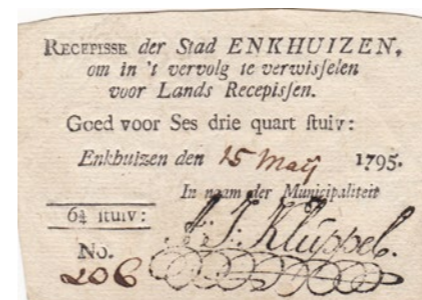 RECEPISSE der Stad ENKHUIZEN,
om in 't vervolg te verwisſelen
voor Lands Recepisſen.
Goed voor Ses drie quart ſtuiv:
Enkhuizen den 15 Maij 1795.
In naam der Municipaliteit
6¾ ſtuiv:
J. J. Kluppel.
No.
206